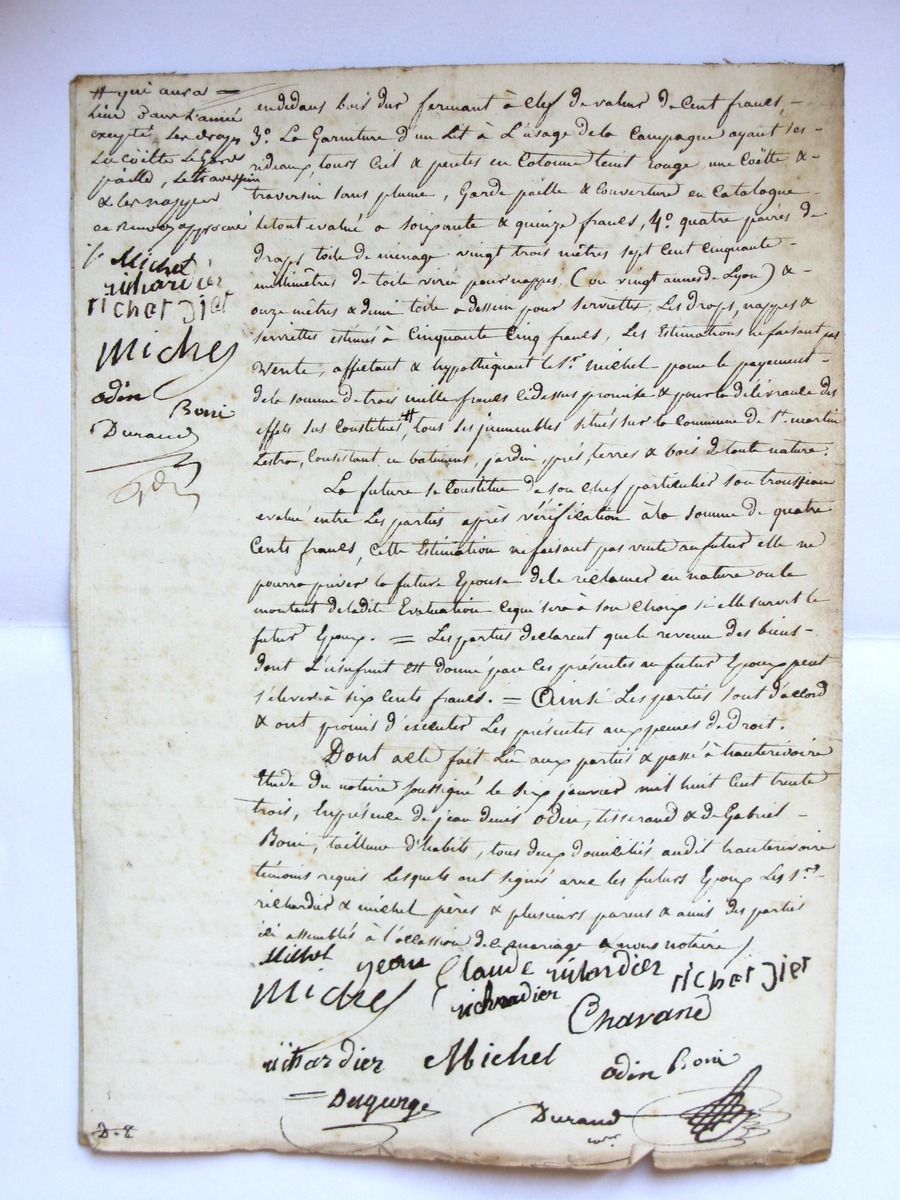 # qui aura =
lieu dans l'année
excepté les draps
la coëtte le garde
paille, le traversin
& les nappes
ce renvoy approuvé
Michel
richardier
richerdier
Michel
odin
Boni
Durand
endedans bois dur fermant à clef de valeur de cent francs, -
3º. La garniture d'un Lit à L'usage de la Campagne ayant ses -
rideaux, tours Ciel & pentes en Cotonne teint rouge, une Coëtte & -
traversin sans plume, Garde paille & Couverture en Catalogne -
letout évalué a soixante & quinze francs, 4º. quatre paires de
draps toile de menage vingt trois mètres sept cent cinquante -
millimètres de toile pour nappes, (ou vingt aunes de Lyon) & -
onze mètres & demi toile a dessein pour serviettes, Les draps, nappes &
serviettes estimés à Cinquante Cinq francs, Les Estimations ne faisant pas
Vente, affectant & hypothéquant le Sr. Michel pour le payement -
de la somme de trois mille francs cidessus promise & pour la délivrance des
effets sus Constitués #, tous ses immeubles situés sur la Commune de St. martin
Lestra, Consistant en batiment, jardin, prés, terres & bois de toute nature.
La future se Constitue de son chef particulier son trousseau
evalué entre Les parties après vérification à la somme de quatre
Cents francs, cette Estimation ne faisant pas vente au futur elle ne
pourra priver la future Epouse de le réclamer en nature ou le
montant de ladite Evaluation ce qui sera à son Choix si elle survit le
futur Epoux. = Les parties déclarent que le revenu des biens -
dont L'usufruit est donné par Ces présentes au futur Epoux peut
s'élever à six Cents francs. = Ainsi Les parties sont d'accord
& ont promis d'exécuter Les présentes aux peines de Droit.
Dont acte fait Lu aux parties & passé à hauterivoire
Etude du notaire soussigné le six janvier mil huit cent trente
trois, En présence de jean denis odin, tisserand & de Gabriel -
Boni, tailleur d'habits, tous deux domiciliés audit hauterivoire
témoins requis Lesquels ont signés avec les futurs Epoux Les Srs. -
richardier & michel pères & plusieurs parens & amis des parties
ici assemblés à l'occasion de ce mariage & nous notaire /.
Michel jean Claude richardier richerdier
Michel richardier Chavane
richardier Michel odin Boni
Desgorge Durand
D. E